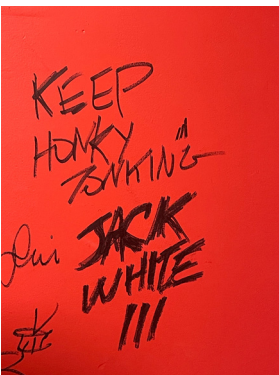 KEEP
HONKY
TONKING
JACK
WHITE
III